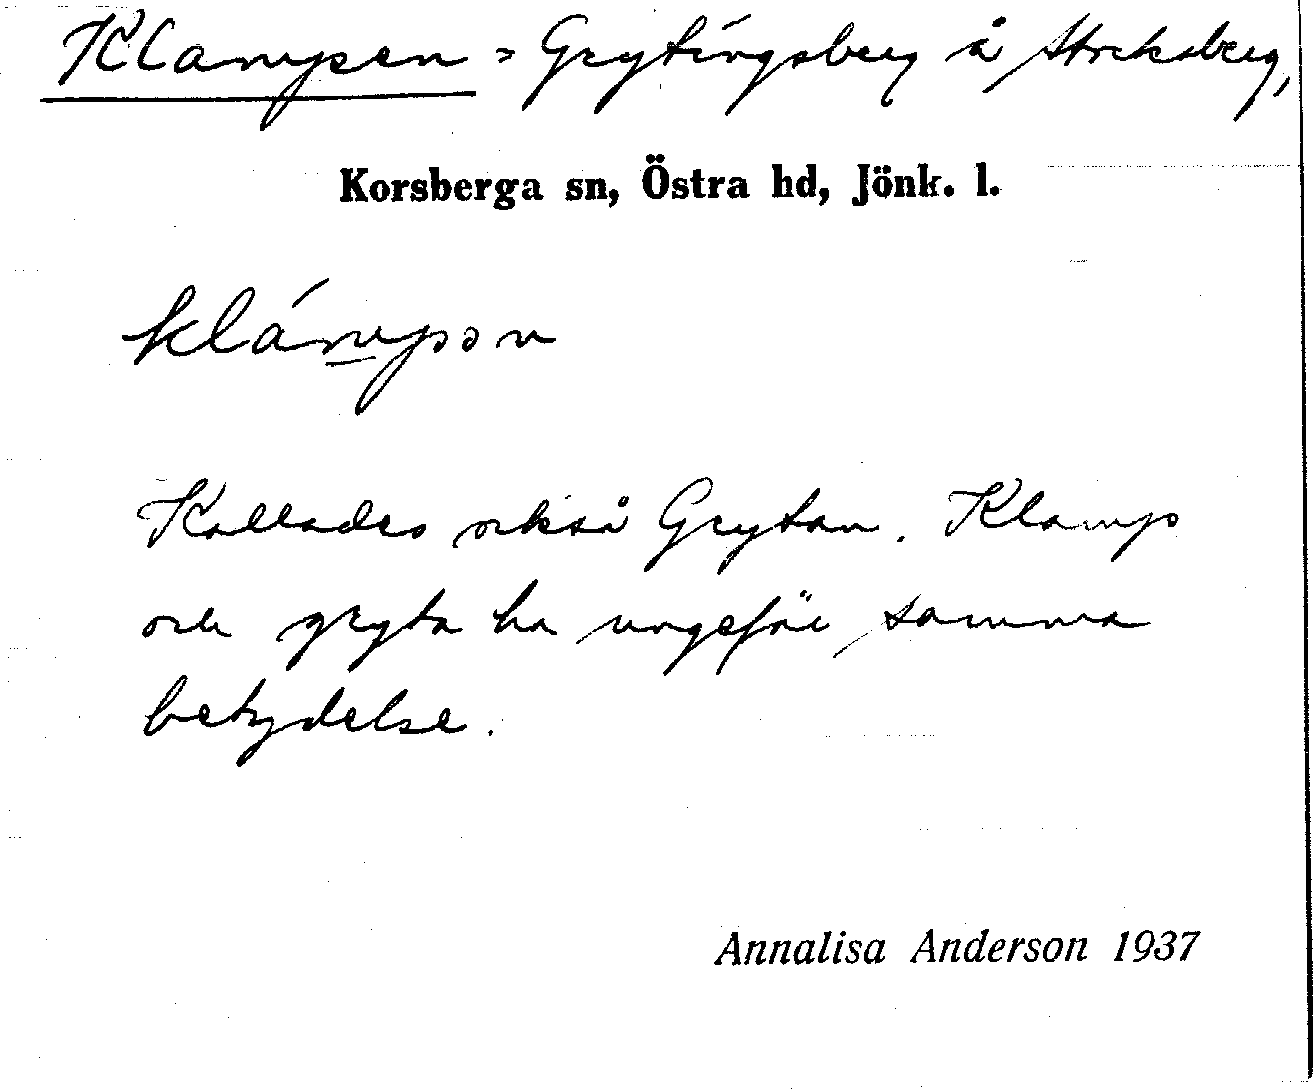 Klampen = Grytingsberg å Stocksberg,
Korsberga sn, Östra hd, Jönk. l.
klámpən
Kallades också Grytan. Klamp
och gryta ha ungefär samma
betydelse.
Annalisa Anderson 1937